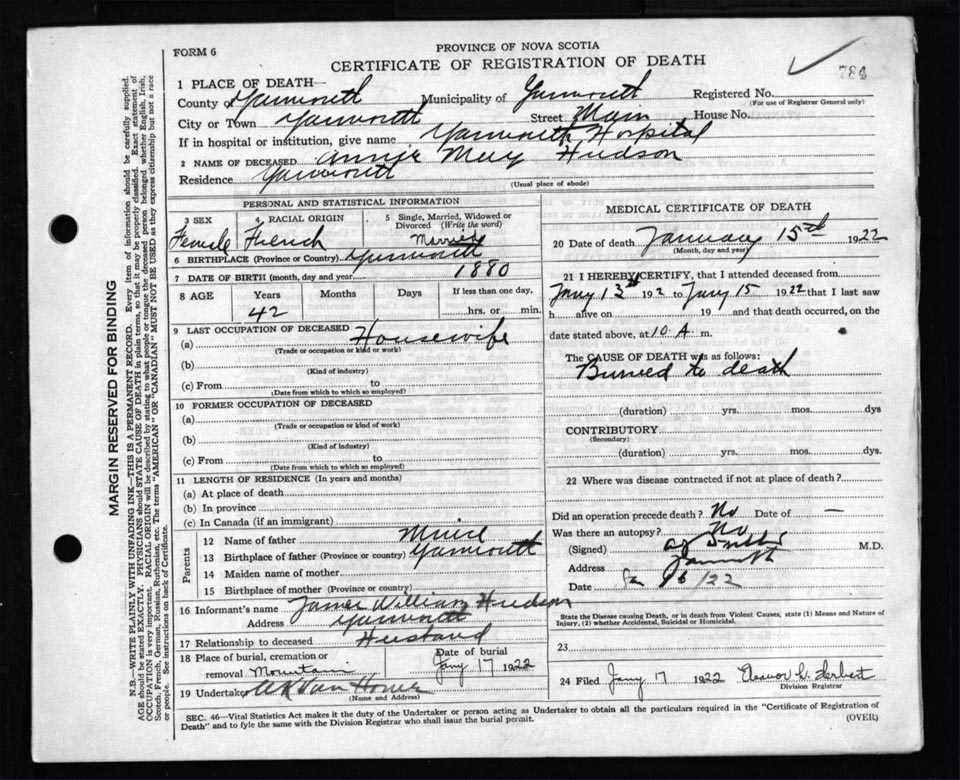 FORM 6
PROVINCE OF NOVA SCOTIA
CERTIFICATE OF REGISTRATION OF DEATH
784
1 PLACE OF DEATH—
County of Yarmouth Municipality of Yarmouth Registered No.
(For use of Registrar General only)
City or Town Yarmouth Street Main House No.
If in hospital or institution, give name Yarmouth Hospital
2 NAME OF DECEASED Annie May Hudson
Residence Yarmouth
(Usual place of abode)
PERSONAL AND STATISTICAL INFORMATION
3 SEX 4. RACIAL ORIGIN 5 Single, Married, Widowed or Divorced (Write the word)
Female French Married
6 BIRTHPLACE (Province or Country) Yarmouth
7 DATE OF BIRTH (month, day and year) 1880
8 AGE Years Months Days If less than one day,
42 hrs. or min.
9 LAST OCCUPATION OF DECEASED
(a) Housewife
(Trade or occupation or kind of work)
(b)
(Kind of industry)
(c) From to
(Date from which to which so employed)
10 FORMER OCCUPATION OF DECEASED
(a)
(Trade or occupation or kind of work)
(b)
(Kind of industry)
(c) From to
(Date from which to which so employed)
11 LENGTH OF RESIDENCE (In years and months)
(a) At place of death
(b) In province
(c) In Canada (if an immigrant)
Parents
12 Name of father
13 Birthplace of father (Province or country) Yarmouth
14 Maiden name of mother
15 Birthplace of mother (Province or country)
16 Informant's name James William Hudson
Address Yarmouth
17 Relationship to deceased Husband
18 Place of burial, cremation or removal Mountain
Date of burial
Jany 17 1922
19 Undertaker Van Horne
(Name and Address)
MEDICAL CERTIFICATE OF DEATH
20 Date of death January 15th 1922
(Month, day and year)
21 I HEREBY CERTIFY, that I attended deceased from
Jany 13th 192 to Jany 15 1922 that I last saw
h alive on 19 and that death occurred, on the
date stated above, at 10 A. m.
The CAUSE OF DEATH was as follows:
Burned to death
(duration) yrs. mos. dys
CONTRIBUTORY
(Secondary)
(duration) yrs. mos. dys.
22 Where was disease contracted if not at place of death?
Did an operation precede death? No Date of —
Was there an autopsy? No
(Signed) M.D.
Address Yarmouth
Date Jan 16/22
State the Disease causing Death, or in death from Violent Causes, state (1) Means and Nature of Injury, (2) whether Accidental, Suicidal or Homicidal.
23
24 Filed Jany 17 1922 Eleanor
Division Registrar
SEC. 46—Vital Statistics Act makes it the duty of the Undertaker or person acting as Undertaker to obtain all the particulars required in the "Certificate of Registration of
Death" and to fyle the same with the Division Registrar who shall issue the burial permit.
(OVER)
MARGIN RESERVED FOR BINDING
N.B.—WRITE PLAINLY WITH UNFADING INK—THIS IS A PERMANENT RECORD. Every item of information should be carefully supplied.
AGE should be stated EXACTLY. PHYSICIANS should STATE CAUSE OF DEATH in plain terms, so that it may be properly classified. Exact statement of
OCCUPATION is very important. RACIAL ORIGIN will be described by stating to what people or tongue the deceased person belonged whether English, Irish,
Scotch, French, German, Russian, Ruthenian, etc. The terms "AMERICAN" OR "CANADIAN" MUST NOT BE USED as they express citizenship but not a race
or people. See instructions on back of Certificate.